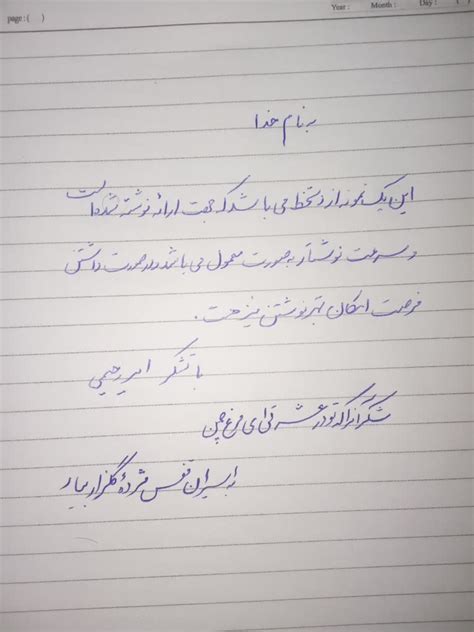 page : (    )    Year :    Month :    Day :    (   )
به نام خدا
این یک نمونه از دستخط می باشد که جهت ارائه نوشته شده است
و سرعت نوشتار به صورت معمول می باشد و در صورت داشتن
فرصت امکان بهتر نوشتن نیز هست.
با تشکر امیر رحیمی
شکر آنرا که تو در عشرتی ای مرغ چمن
به اسیران قفس مژدهٔ گلزار بیار